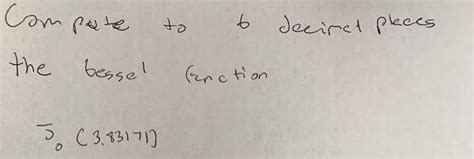 Compute to 6 decimal places
the bessel function
J₀ (3.83171)